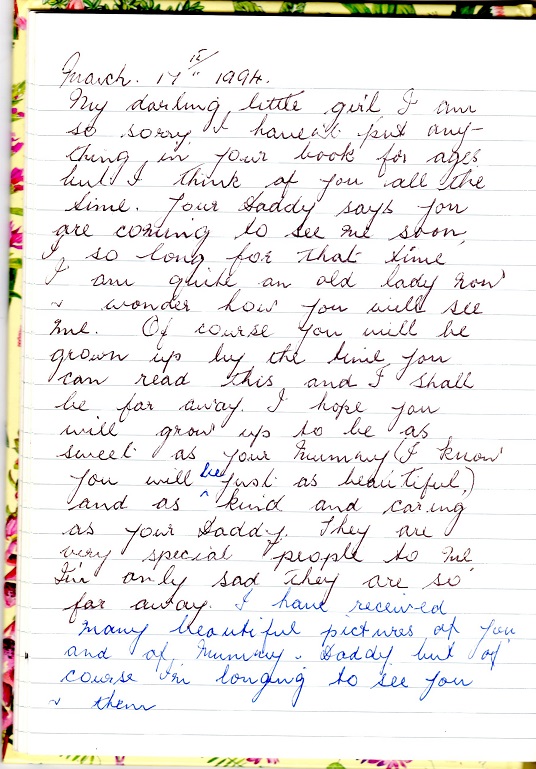 March. 17th 1994.
My darling little girl I am
so sorry I haven't put any-
thing in your book for ages
but I think of you all the
time. Your Daddy says you
are coming to see me soon,
I so long for that time
I am quite an old lady now
& wonder how you will see
me. Of course you will be
grown up by the time you
can read this and I shall
be far away. I hope you
will grow up to be as
sweet as your Mummy (I know
you will be just as beautiful,)
and as kind and caring
as your Daddy. They are
very special people to me
I'm only sad they are so
far away. I have received
many beautiful pictures of you
and of Mummy & Daddy but of
course I'm longing to see you
& them